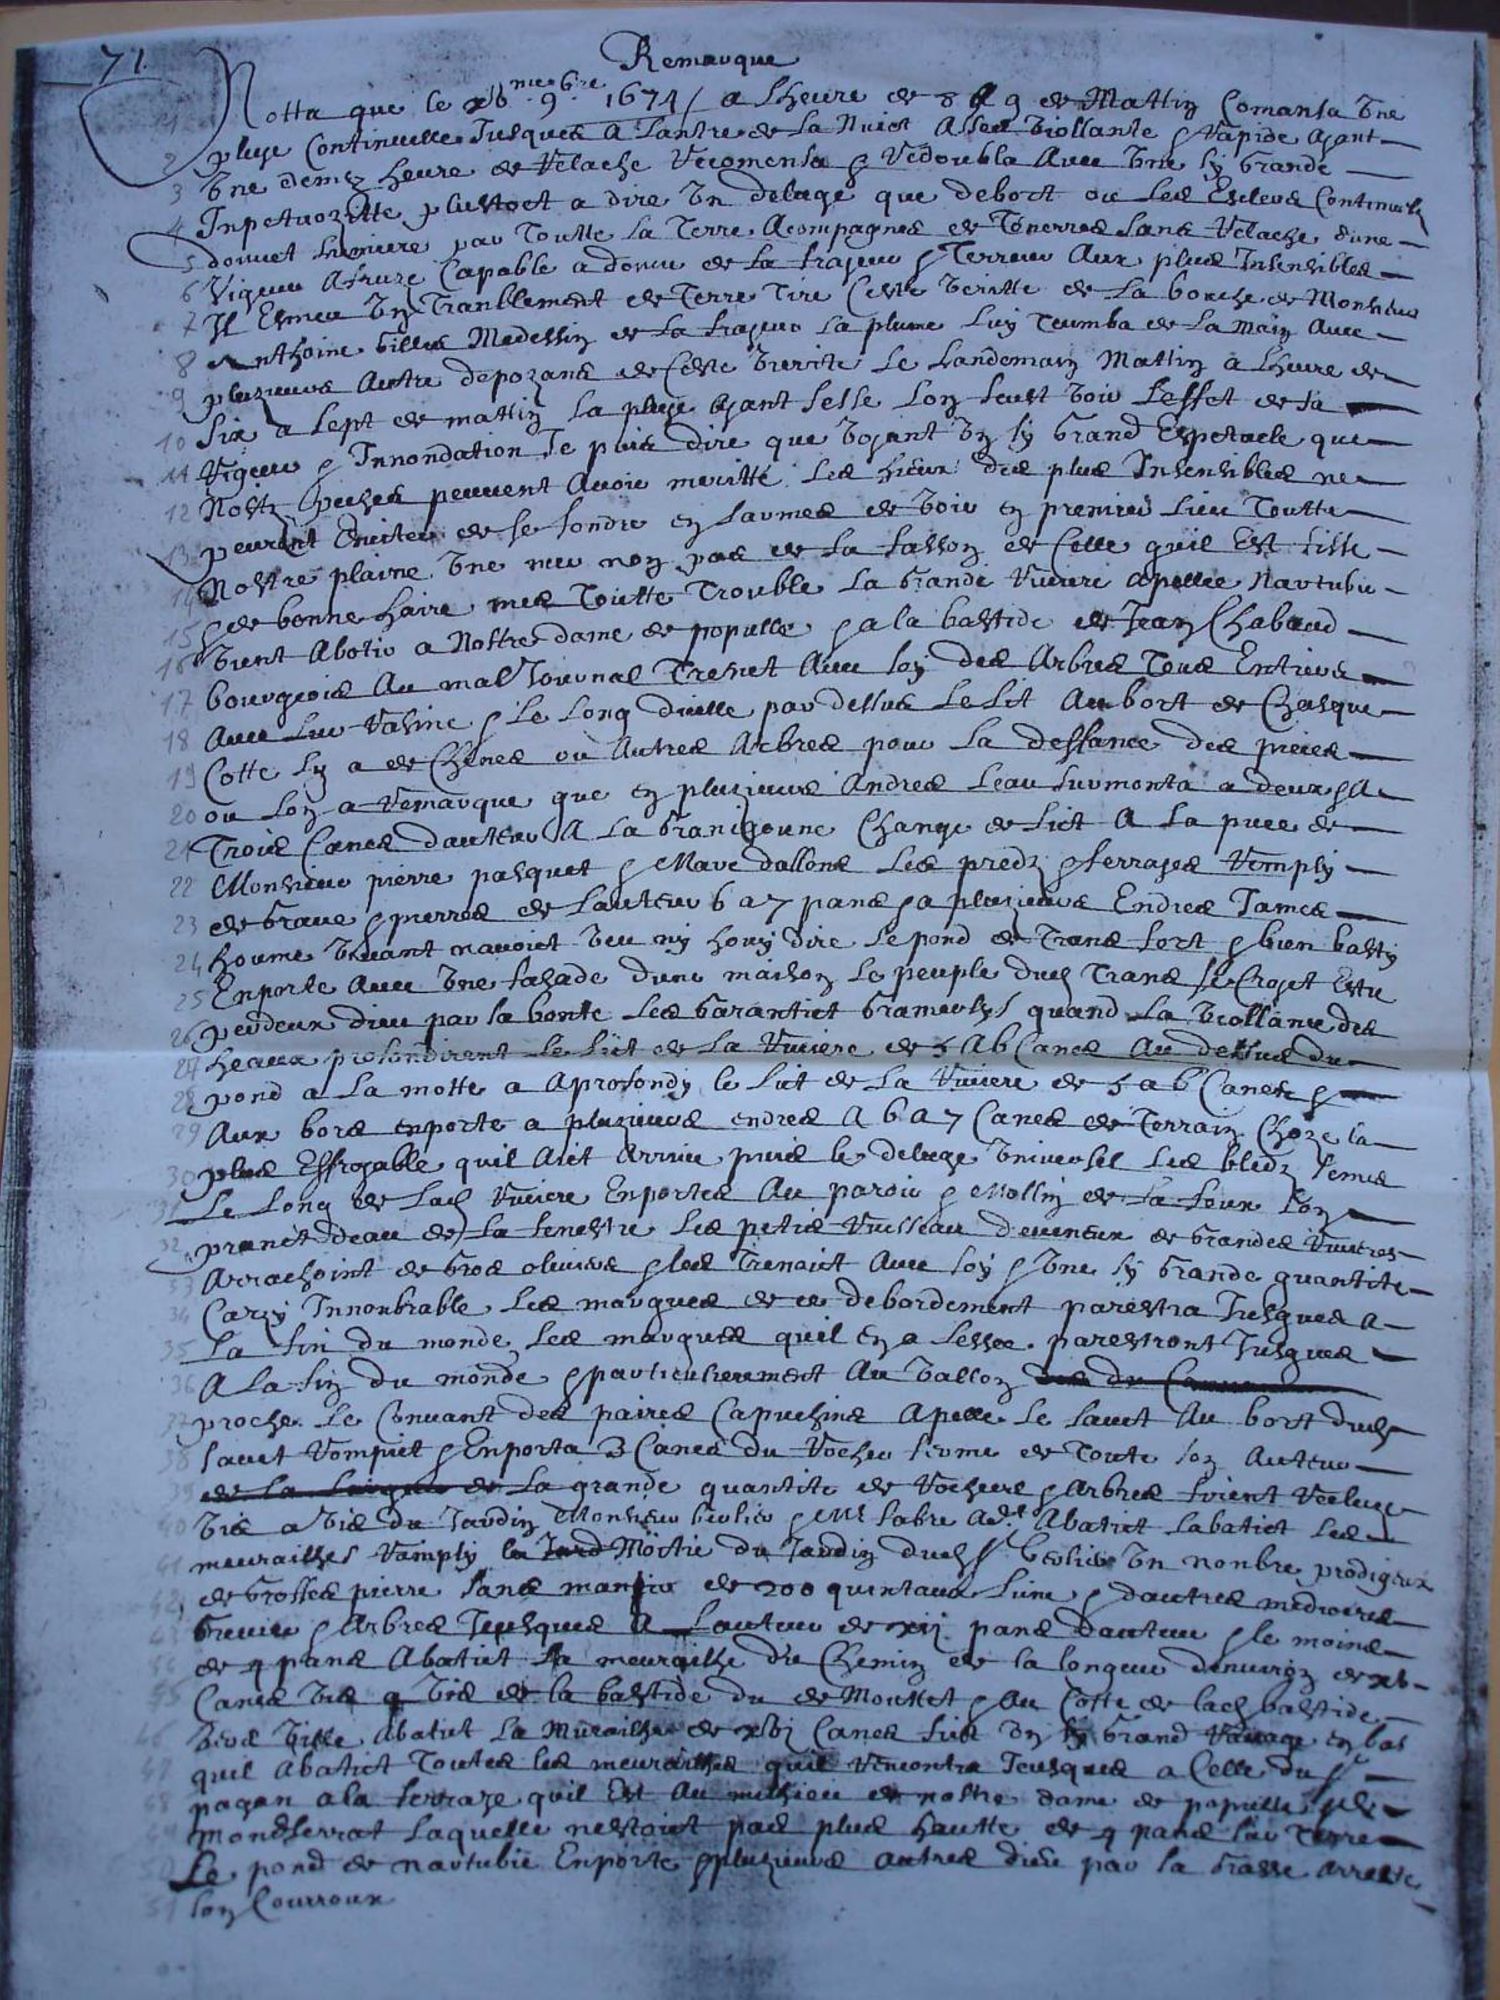 71.
Remarque
Notta que le xb 9.mbre 1674 / a Lheure de 8 A 9 de Mattin Comansa vne
pluye Continuelle Jusques A Lantre de La Nuict Assez viollante & Rapide Ajant
vne demy heure de Relache Recomensa & Redoubla Avec vne sy Grande
Inpetuozitte plustoct a dire vn deluge que debort ou Les Escleus Continuels
donnet Lumiere par Toutte La Terre Acompagnes de Tonerres sans Relache dune
Vigeur Afruze Capable a donner de La frajeur & Terreur Aux plus Insensibles
Il Esmeu vn Tranblement de Terre Tire Ceste veritte de La bouche de Monsieur
Anthoine Gilles Medessin de La frajeur La plume Luy Tumba de La main Avec
pluzieurs Autre depozans de Ceste verite Le Landemain Mattin a Lheure de
Six a sept de mattin La pluye Ajant sesse Lon feust voir Leffet de sa
Vigeur & Innondation Je puis dire que vojant vn sy Grand Espetacle que
Nostres peches peuvent Avoir meritté Les hieux des plus Insensibles ne
peuvent Eviter de se fondre en Larmes de voir en premier Lieu Toutte
Nostre plaine vne mer non pas de La fasson de Celle quil Est Lisse
& de bonne haire mes Toutte Trouble La Grande Riviere apellee Nartubie
vient Abotir a Nostre dame de populle & a la bastide de Jean Chabaud
bourgeois Au mal Journal Tresnet Avec soy des Arbres Tous Entiers
Avec Lur Rasine & Le Long dicelle par dessus Le Lit Au bort de Chasque
Cotte Ly a de Chenes ou Autres Arbres pour La deffance des pieces
ou Lon a Remarque que en pluzieurs Andres Leau surmonta a deux & A
Trois Canes dauteur A La Granigoune Change de Lict A La piece de
Monsieur pierre pasquet & Marc dallons Les predz & ferrajes Remply
de Grave & pierres de Lauteur 6 a 7 pans & a pluzieurs Endres James
houme vivant navoict veu ny houy dire Le pond de Trans fort & bien basty
Enporte Avec vne fasade dune maison Le peuple dud Trans se Crojet Estre
perdeux dieu par sa bonte Les Garantiet quand La viollance des
heaux profondirent Le Lict de La Riviere de 5 A 6 Canes Au dessus du
pond a La motte a Aprofondy le Lict de La Riviere de 5 a 6 Canes &
Aux bors enporte a pluzieurs endres A 6 a 7 Canes de Terrain Choze La
plus Effrojable quil Aiet Arrive puis le deluge vniversel Les bledz semes
Le Long de Lad Riviere Enportes Au paroir & Mollin de La Lon
pranet deau de La fenestre Les petis Ruisseau deveneux de Grandes Rivieres
Arrachoint de Gros oliviers & Les Trenaict Avec soy & vne sy Grande quantite
Carzy Innonbrable Les marques de ce debordement parestra Jusques a
La fin du monde Les marques quil en a Lesses parestront Jusques
A La fin du monde & particulierement Au vallon
proche Le Convant des paires Capuchins Apelle Le sauct Au bort dud
sauct Rompiet & Enporta 3 Canes du Rocher ferme de Toute son Auteur
de La La grande quantite de Rochers & Arbres
vis a vis du Jardin Monsieur & Mr fabre Adt Abatiet Labatiet Les
meurailhes Ramply Moitie du Jardin dud vn nonbre prodigeux
de Grosses pierre sans mantir de 200 quintaux Lune & dautres mediocres
Gravier & Arbres Jusques A Lauteur de xij pans dauteur & le moins
de 4 pans Abatiet La meurailhe du Chemin de la Longeur denviron de xb
Canes vis a vis de la bastide du de Mouttet & Au Cotte de lad bastide
vers ville Abatiet La Muraille de xbj Canes fiet vn sy Grand Ravage en bas
quil Abatiet Toutes les meurailhes quil Rencontra Jusques a Celle du Sr
pagan a la ferraze quil Est Au milhieu de nostre dame de populle & de
Montferrat Laquelle nestoict pas plus hautte de 4 pans sur Terre
Le pond de nartubie Enporte & pluzieurs autres dieu par sa Grasse Arreste
son Courroux